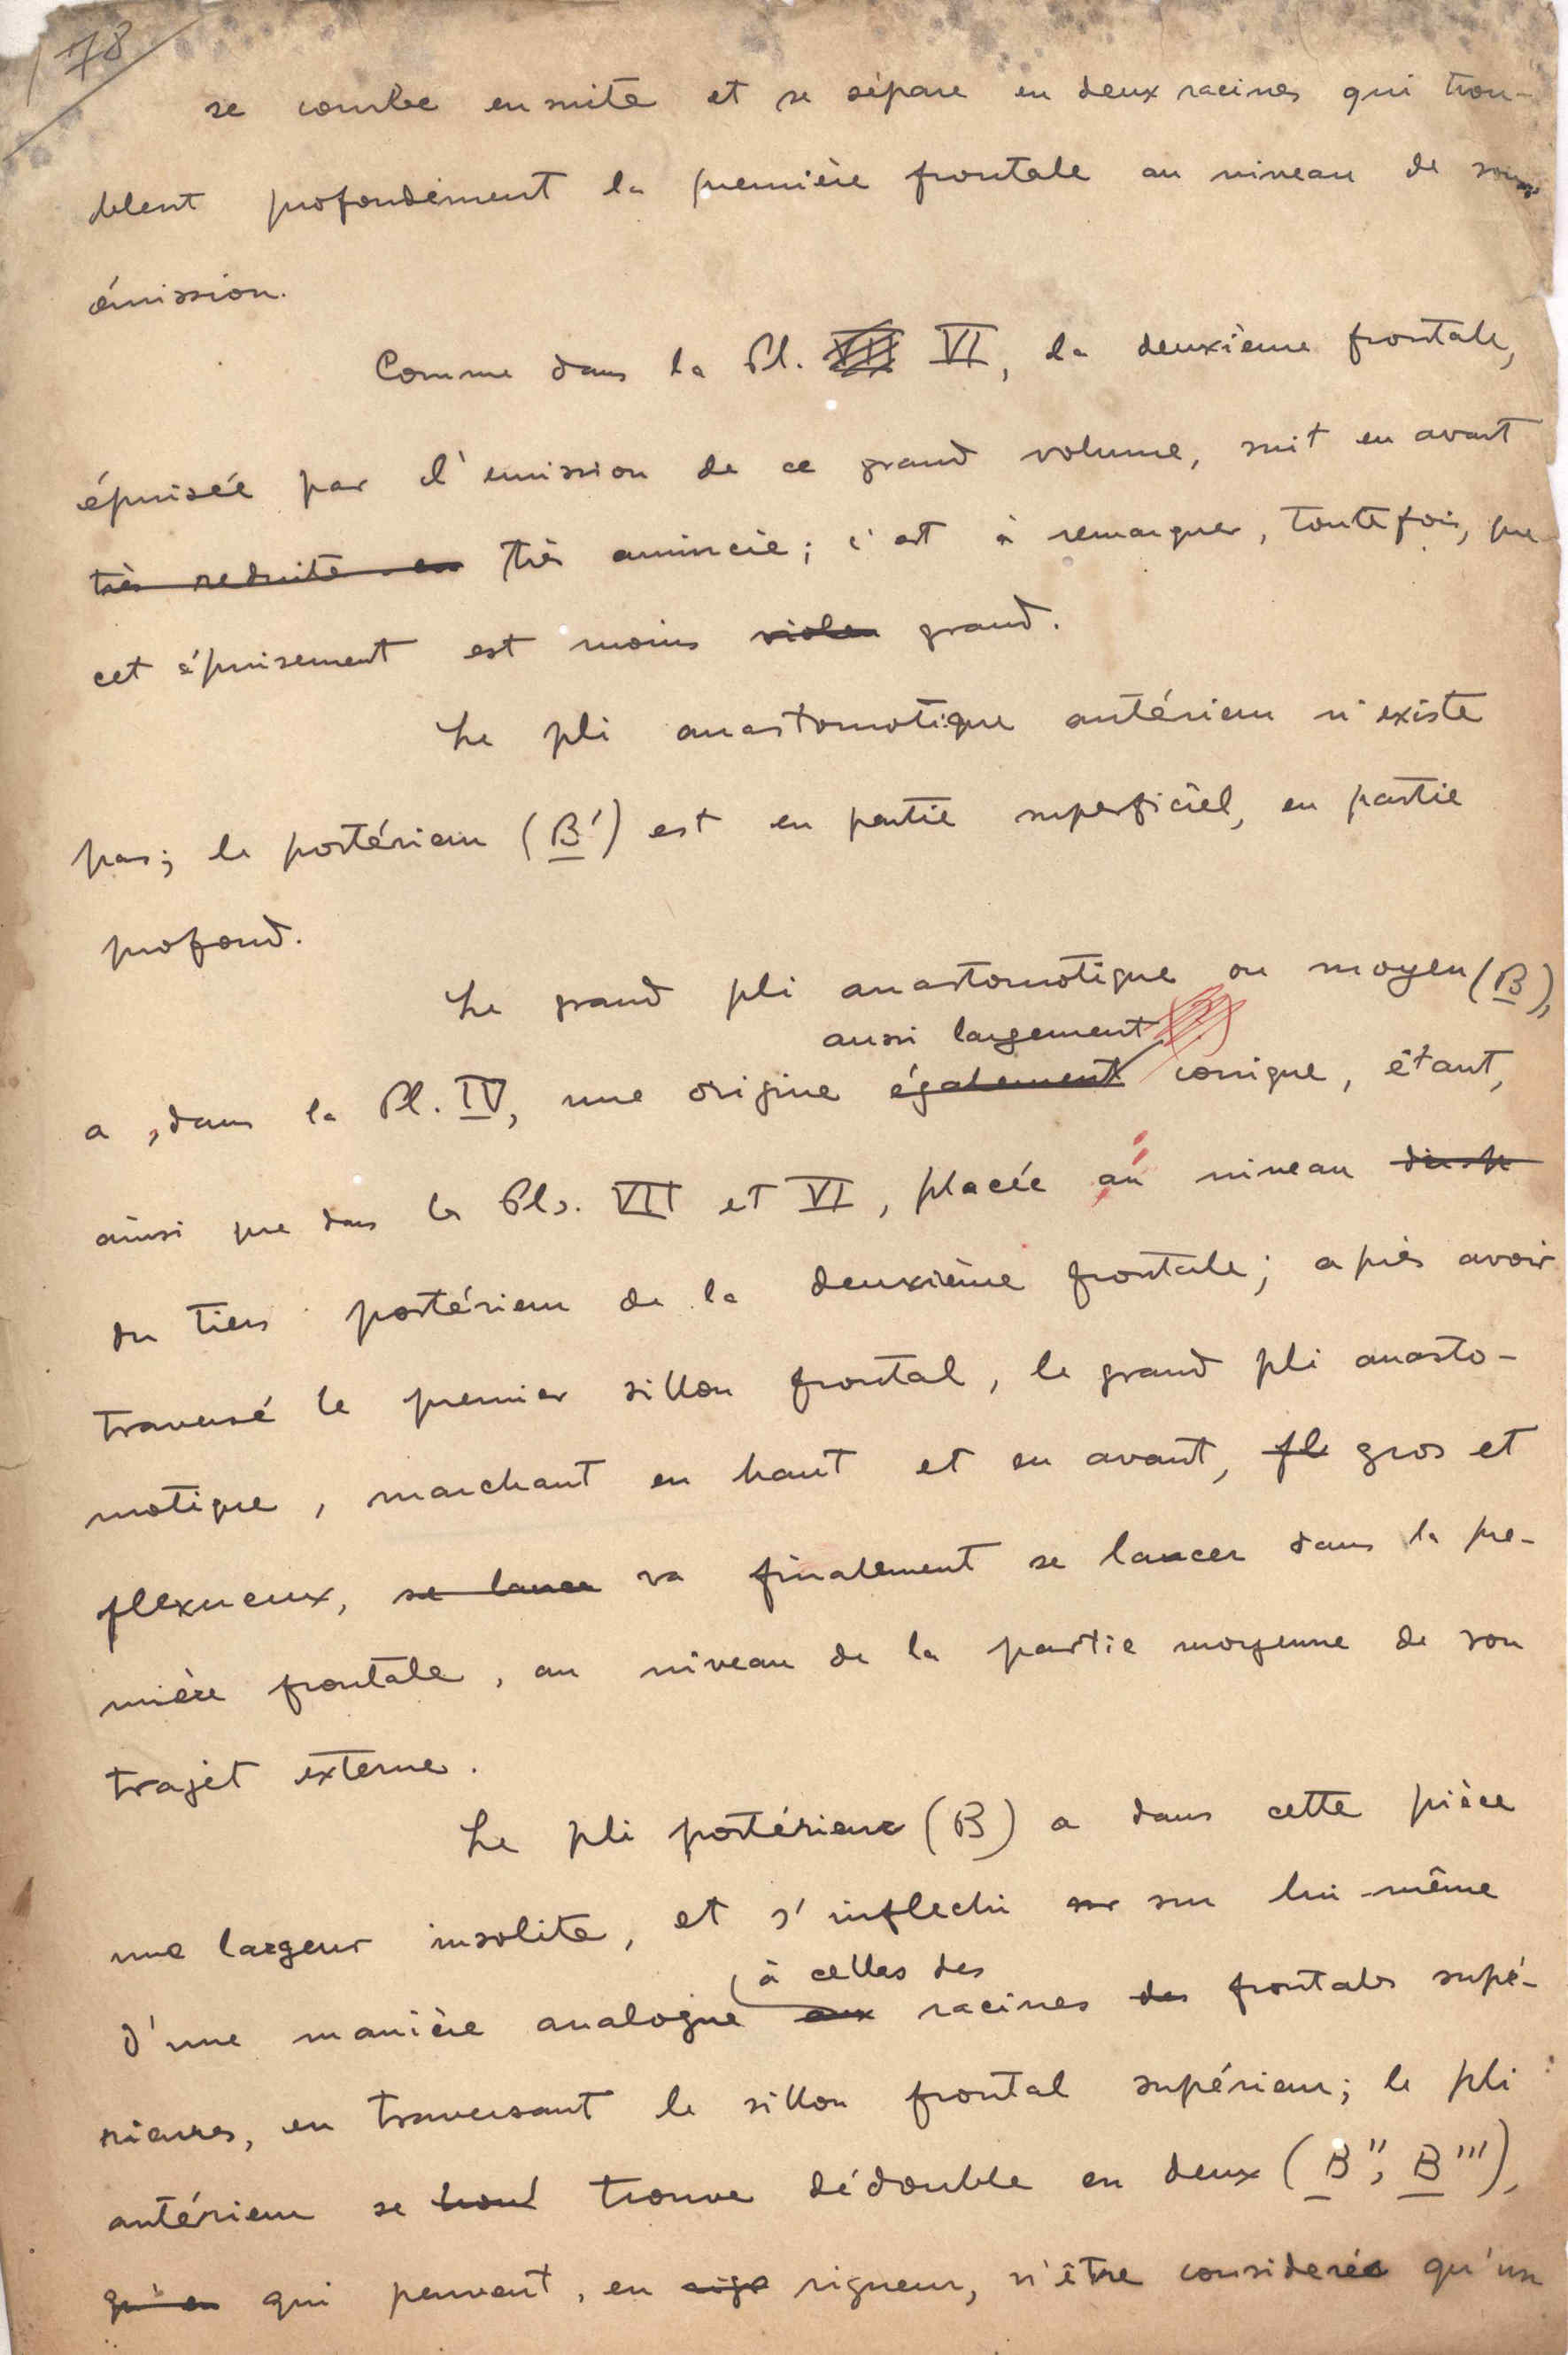 78
se courbe ensuite et se sépare en deux racines qui trou-
blent profondément la première frontale au niveau de son
émission.
Comme dans la Pl. VI, la deuxième frontale,
épuisée par l'emission de ce grand volume, suit en avant
très reduite en très amincie; c'est à remarquer, toutefois, que
cet épuisement est moins violen grand.
Le pli anastomotique antérieur n'existe
pas; le postérieur (B') est en partie superficiel, en partie
profond.
Le grand pli anastomotique ou moyen (B),
aussi largement
a, dans la Pl. IV, une origine également conique, étant,
ainsi que dans les Pls. VII et VI, placée au niveau
du tiers postérieur de la deuxième frontale; après avoir
traversé le premier sillon frontal, le grand pli anasto-
motique, marchant en haut et en avant, fl gros et
flexueux, se lance va finalement se lancer dans la pre-
mière frontale, au niveau de la partie moyenne de son
trajet externe.
Le pli postérieur (B) a dans cette pièce
une largeur insolite, et s'inflechi sur sur lui-même
à celles des
d'une manière analogue aux racines des frontales supé-
rieures, en traversant le sillon frontal supérieur; le pli
antérieur se trouve dédouble en deux (B'', B'''),
qu'en qui peuvent, en rigueur, n'être considerée qu'un